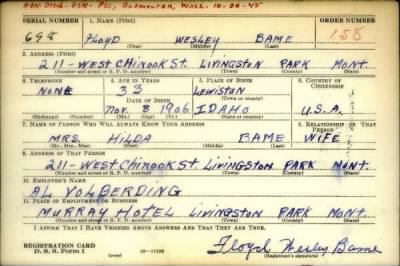 HON. DISC - USN - PSC, BREMERTON, WASH. 10-20-45
SERIAL NUMBER 1. NAME (Print) ORDER NUMBER
698 FLOYD WESLEY BAME 158
(First) (Middle) (Last)
2. ADDRESS (Print)
211 - WEST CHINOOK ST. LIVINGSTON PARK MONT.
(Number and street or R. F. D. number) (Town) (County) (State)
3. TELEPHONE 4. AGE IN YEARS 5. PLACE OF BIRTH 6. COUNTRY OF CITIZENSHIP
NONE 33 LEWISTON
DATE OF BIRTH (Town or county)
NOV. 8 1906 IDAHO U.S.A.
(Mo.) (Day) (Yr.) (State or country)
7. NAME OF PERSON WHO WILL ALWAYS KNOW YOUR ADDRESS 8. RELATIONSHIP OF THAT PERSON
MRS. HILDA BAME WIFE
(Mr., Mrs., Miss) (First) (Middle) (Last)
9. ADDRESS OF THAT PERSON
211 - WEST CHINOOK ST. LIVINGSTON PARK MONT.
(Number and street or R. F. D. number) (Town) (County) (State)
10. EMPLOYER'S NAME
AL VOLBERDING
11. PLACE OF EMPLOYMENT OR BUSINESS
MURRAY HOTEL LIVINGSTON PARK MONT.
(Number and street or R. F. D. number) (Town) (County) (State)
I AFFIRM THAT I HAVE VERIFIED ABOVE ANSWERS AND THAT THEY ARE TRUE.
REGISTRATION CARD
D. S. S. Form 1 16—17105 Floyd Wesley Bame
(Registrant's signature)